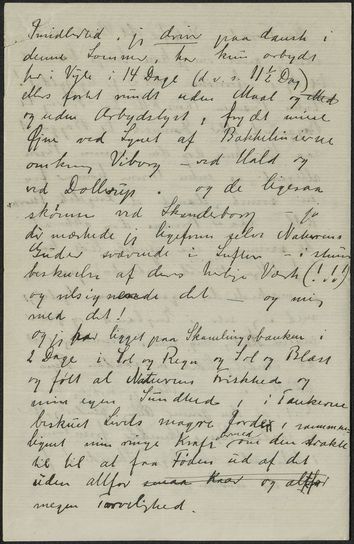 Fuindleved, jeg driver paa dansk i
denne Sommer, har kun arbejdt
her i Vejle i 14 Dage (d.v.s. 11½ Dag)
ellers faret rundt uden Maal og Med
og uden Arbejdslyst, frydet mine
Øjne ved Synet af Bakkelinierne
omkring Viborg – ved Hald og
ved Dollerup. og de ligesaa
skønne ved Skanderborg – ja
der mærkede jeg ligefrem selve Naturens
Guder svævende i Luften – i stum
beskuelse af deres herlige Værk (!!!)
og velsignende det – og mig
med det!
og jeg har ligget paa Skamlingsbanken i
2 Dage i Sol og Regn og Sol og Blæst
og følt at Naturens Friskhed og
min egen Sundhed, i Tankerne
beskuet Livets magre Jorder, i sammen-
lignet min ringe Kraft hvormed den strakte
til til at faa Føden ud af det
uden altfor smaa Kaar og altfor
megen Tarvelighed.